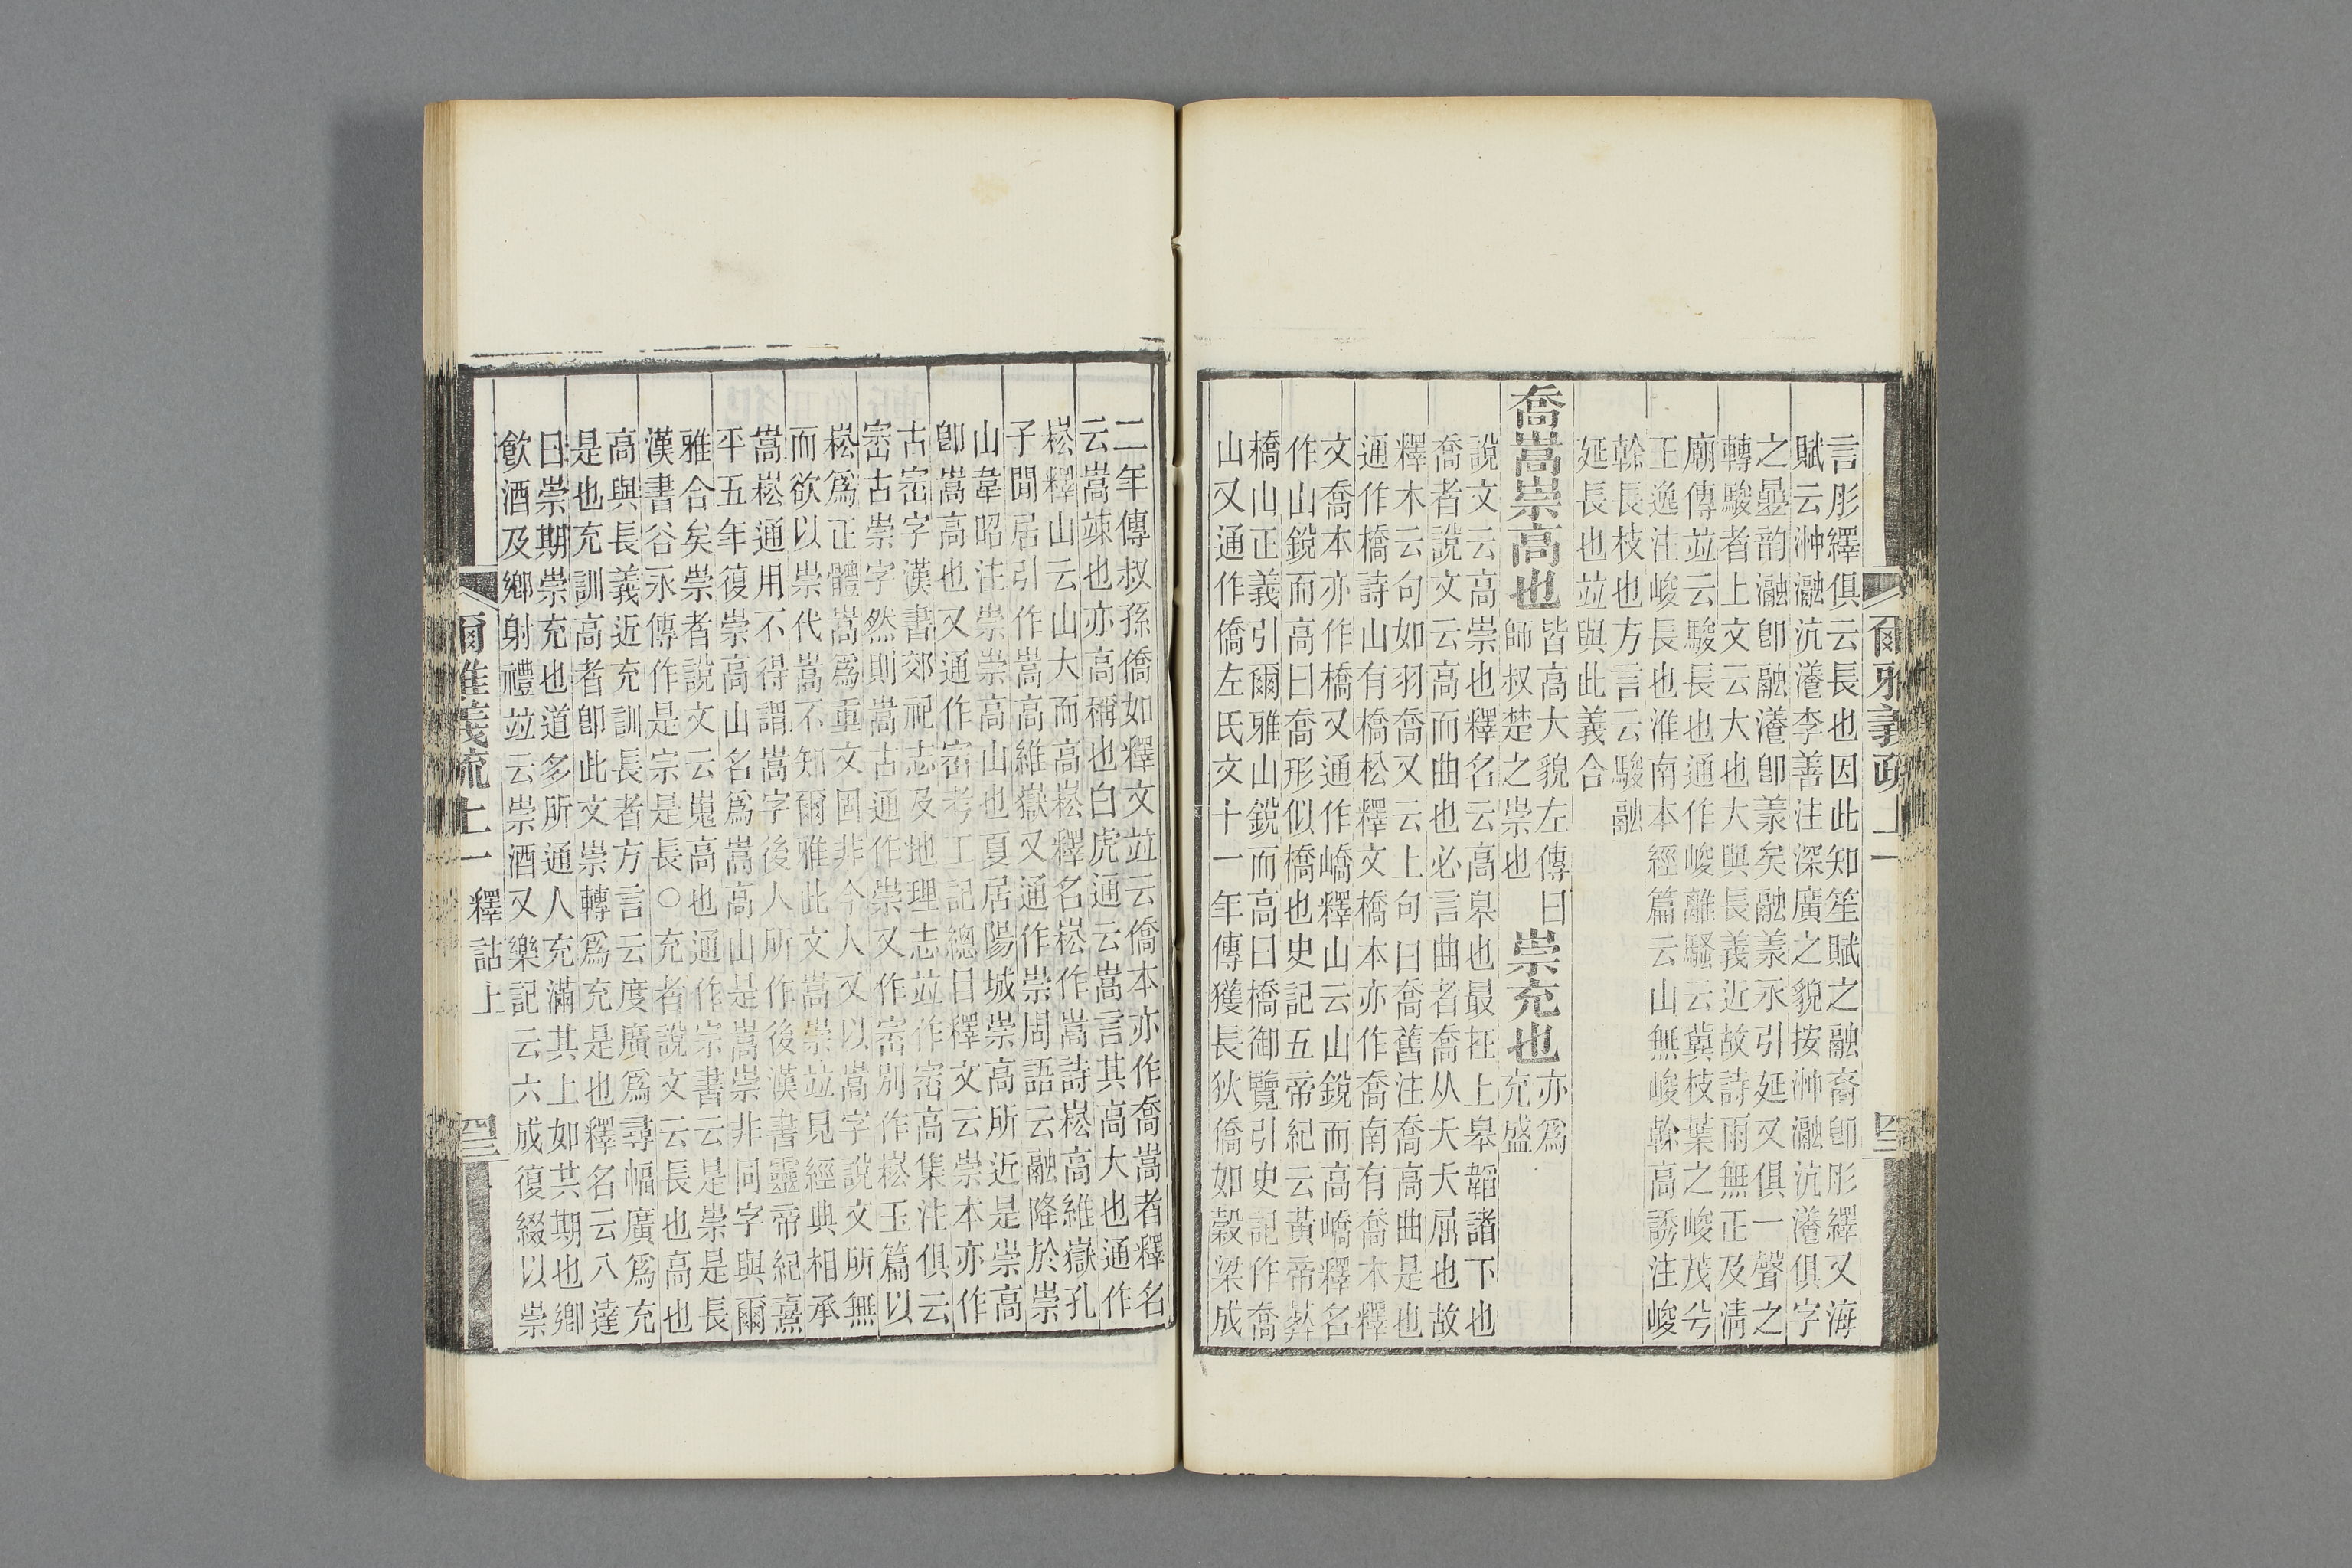 爾雅義疏上一
言肜繹俱云長也因此知笙賦之融裔卽肜繹又海
賦云浺瀜沆瀁李善注深廣之貌按浺瀜沆瀁俱字
之㬪韵瀜卽融瀁卽羕矣融羕永引延又俱一聲之
轉駿者上文云大也大與長義近故詩雨無正及淸
廟傳竝云駿長也通作峻離騷云冀枝葉之峻茂兮
王逸注峻長也淮南本經篇云山無峻榦高誘注峻
榦長枝也方言云駿融
延長也竝與此義合
喬嵩崇高也
皆高大貌左傳曰
師叔楚之崇也
崇充也
亦爲
充盛
說文云高崇也釋名云高皋也最在上皋韜諸下也
喬者說文云高而曲也必言曲者喬从夭夭屈也故
釋木云句如羽喬又云上句曰喬舊注喬高曲是也
通作橋詩山有橋松釋文橋本亦作喬南有喬木釋
文喬本亦作橋又通作嶠釋山云山銳而高嶠釋名
作山銳而高曰喬形似橋也史記五帝紀云黃帝葬
橋山正義引爾雅山銳而高曰橋御覽引史記作喬
山又通作僑左氏文十一年傳獲長狄僑如穀梁成
二年傳叔孫僑如釋文竝云僑本亦作喬嵩者釋名
云嵩竦也亦高稱也白虎通云嵩言其高大也通作
崧釋山云山大而高崧釋名崧作嵩詩崧高維嶽孔
子閒居引作嵩高維嶽又通作崇周語云融降於崇
山韋昭注崇崇高山也夏居陽城崇高所近是崇高
卽嵩高也又通作崈考工記總目釋文云崇本亦作
古崈字漢書郊祀志及地理志竝作崈高集注俱云
崈古崇字然則嵩古通作崇又作崈別作崧玉篇以
崧爲正體嵩爲重文固非今人又以嵩字說文所無
而欲以崇代嵩不知爾雅此文嵩崇竝見經典相承
嵩崧通用不得謂嵩字後人所作後漢書靈帝紀熹
平五年復崇高山名爲嵩高山是嵩崇非同字與爾
雅合矣崇者說文云嵬高也通作宗書云是崇是長
漢書谷永傳作是宗是長○充者說文云長也高也
高與長義近充訓長者方言云度廣爲尋幅廣爲充
是也充訓高者卽此文崇轉爲充是也釋名云八達
曰崇期崇充也道多所通人充滿其上如共期也鄉
飮酒及鄉射禮竝云崇酒又樂記云六成復綴以崇
爾雅義疏上一 釋詁上